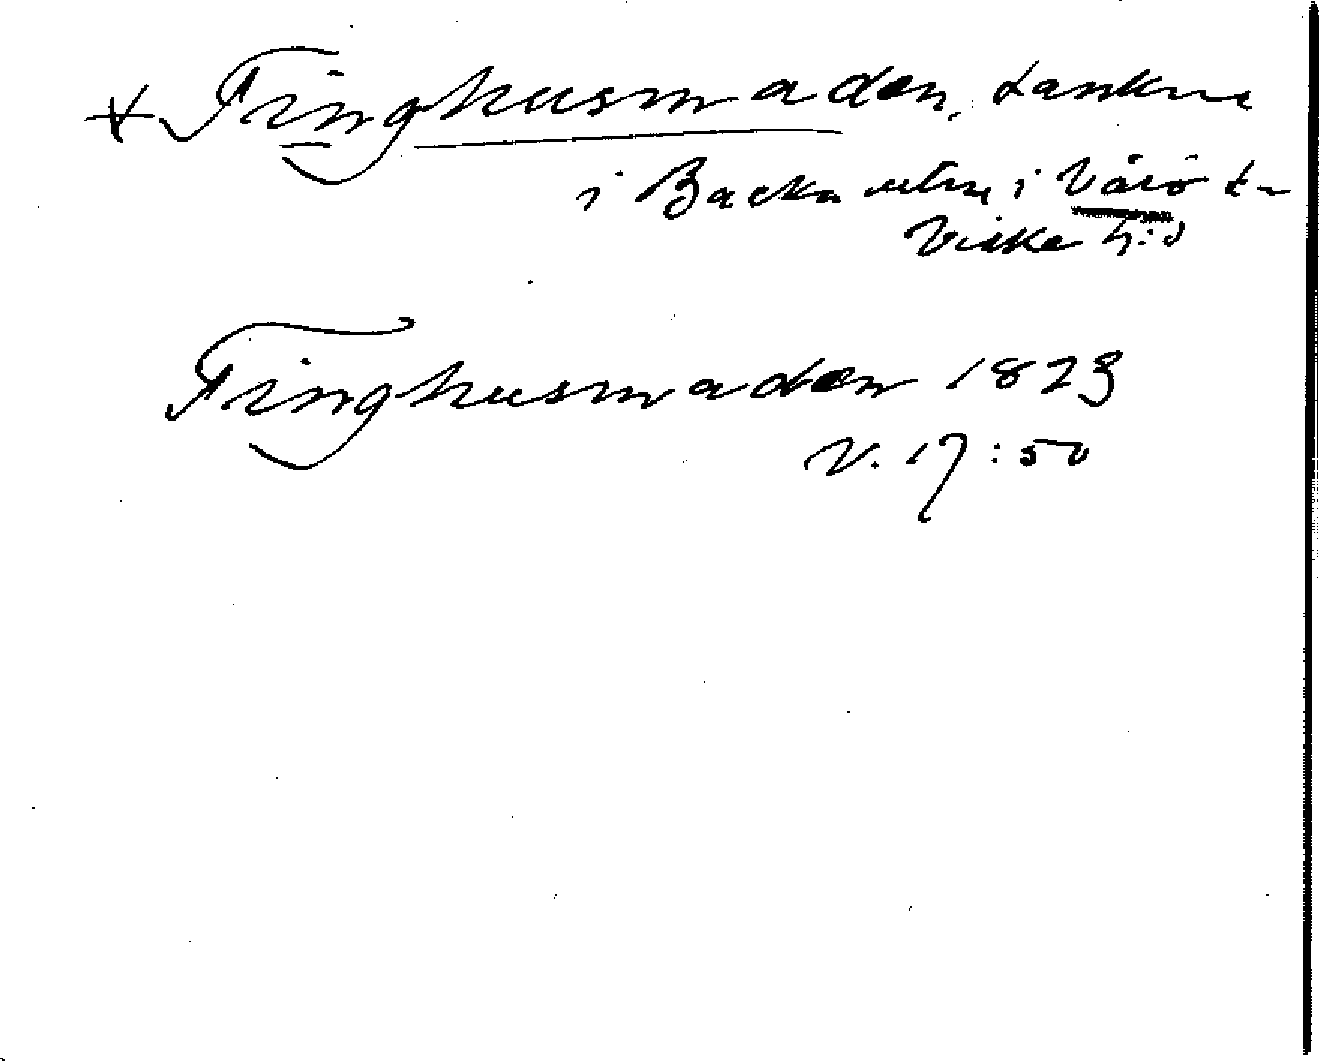 + Tinghusmaden, tankar
i Backa utm. i Värö s-
Viske h:d
Tinghusmaden 1823
V. 17:50